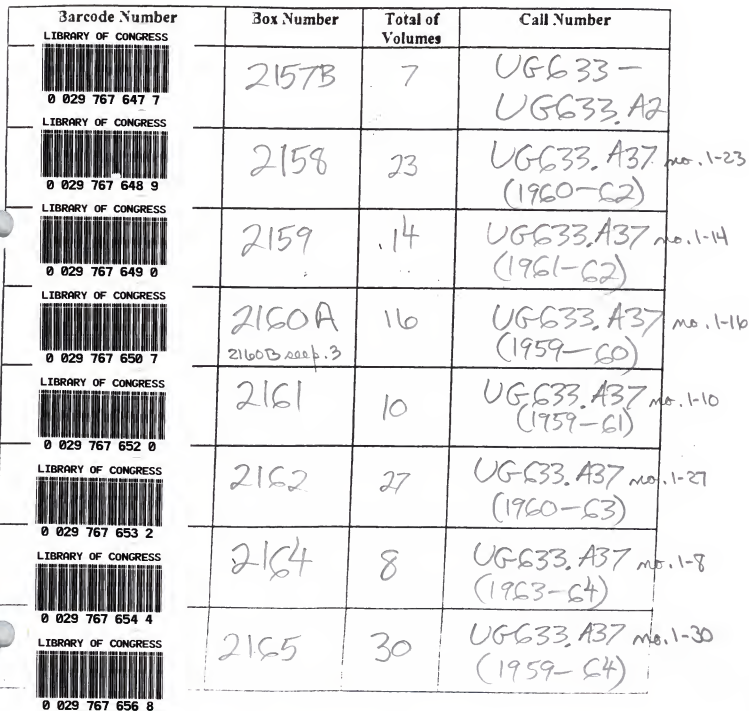 Barcode Number Box Number Total of Volumes Call Number
LIBRARY OF CONGRESS
0 029 767 647 7
2157B 7 UG633 -
UG633.A2
LIBRARY OF CONGRESS
0 029 767 648 9
2158 23 UG633.A37 no. 1-23
(1960-62)
LIBRARY OF CONGRESS
0 029 767 649 0
2159 14 UG633.A37 no. 1-14
(1961-62)
LIBRARY OF CONGRESS
0 029 767 650 7
2160A 16 UG633.A37 no. 1-16
2160B see p. 3 (1959-60)
LIBRARY OF CONGRESS
0 029 767 652 0
2161 10 UG633.A37 no. 1-10
(1959-61)
LIBRARY OF CONGRESS
0 029 767 653 2
2162 27 UG633.A37 no. 1-27
(1960-63)
LIBRARY OF CONGRESS
0 029 767 654 4
2164 8 UG633.A37 no. 1-8
(1963-64)
LIBRARY OF CONGRESS
0 029 767 656 8
2165 30 UG633.A37 no. 1-30
(1959-64)